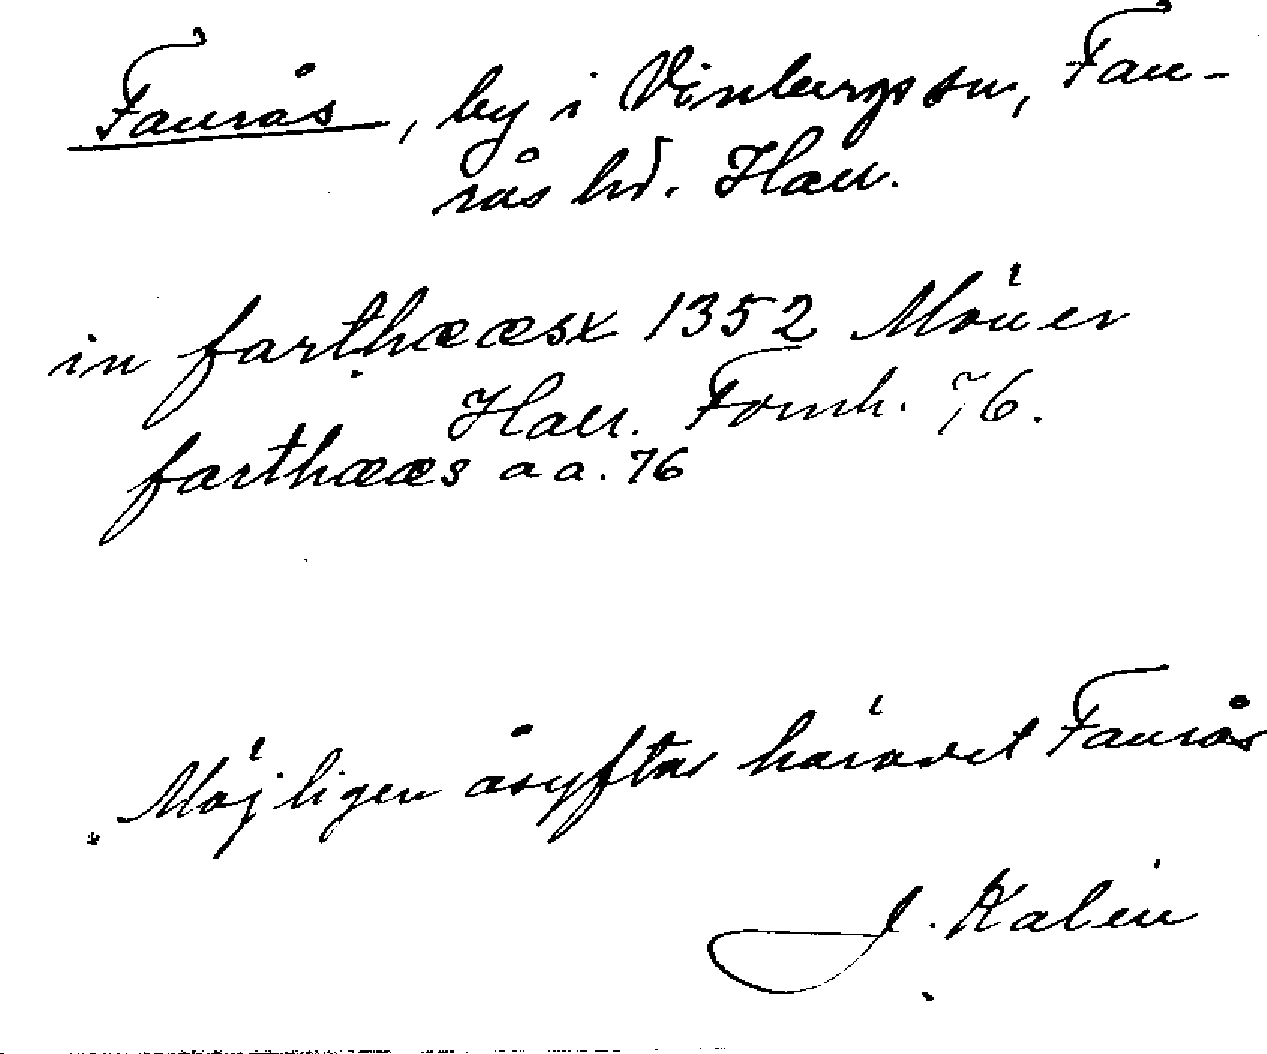 Faurås, by i Vinbergs sn, Fau-
rås hd. Hall.
in farthææsx 1352
Hall. Fornh. 76.
farthææs a a. 76
Möjligen åsyftas häradet Faurås
J. Kalén